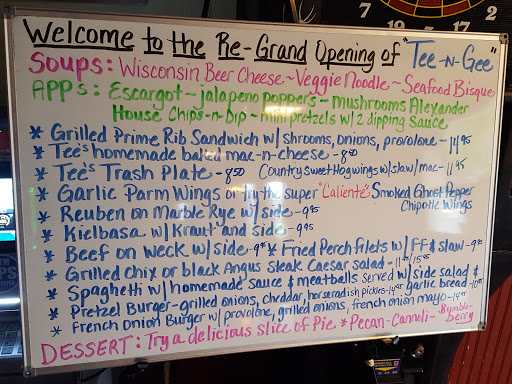 Welcome to the Re-Grand Opening of "Tee-N-Gee"
SOUPS: Wisconsin Beer Cheese ~ Veggie Noodle ~ Seafood Bisque
APPS: Escargot ~ jalapeno poppers ~ mushrooms Alexander
House Chips-n-Dip ~ mini pretzels w/ 2 dipping sauce
* Grilled Prime Rib Sandwich w/ shrooms, onions, provolone - 14.95
* Tee's homemade baked mac-n-cheese - 8.50
* Tee's Trash Plate - 8.50 Country sweet Hogwings w/slaw/mac - 11.95
* Garlic Parm Wings or try the super "Caliente" Smoked Ghost Pepper Chipotle Wings
* Reuben on Marble Rye w/ side - 9.95
* Kielbasa w/ Kraut and side - 9.95
* Beef on Weck w/ side - 9.95 * Fried Perch filets w/ FF & slaw - 9.95
* Grilled chix or black Angus Steak Caesar salad - 11.95/15.95
* Spaghetti w/ homemade sauce & meatballs served w/ side salad & garlic bread
* Pretzel Burger - grilled onions, cheddar, horseradish pickles - 14.95
* French Onion Burger w/ provolone, grilled onions, french onion mayo - 14.95
DESSERT: Try a delicious slice of Pie. * Pecan - Cannoli - Bumbleberry
17
2
7